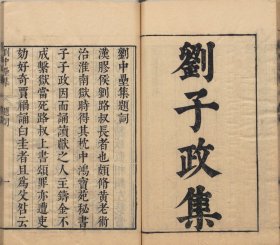 劉子政集
劉中壘集題詞
漢膠侯到路叔長者也頗脩黃老術
治淮南獄時得其枕中鴻寶苑秘書
子子政因而誦讀獻之人主鑄金不
成繫獄當死路叔上書頌罪亦遭吏
劾好奇賈禍誦白圭者且為父咎云
劉中壘集
題詞
一